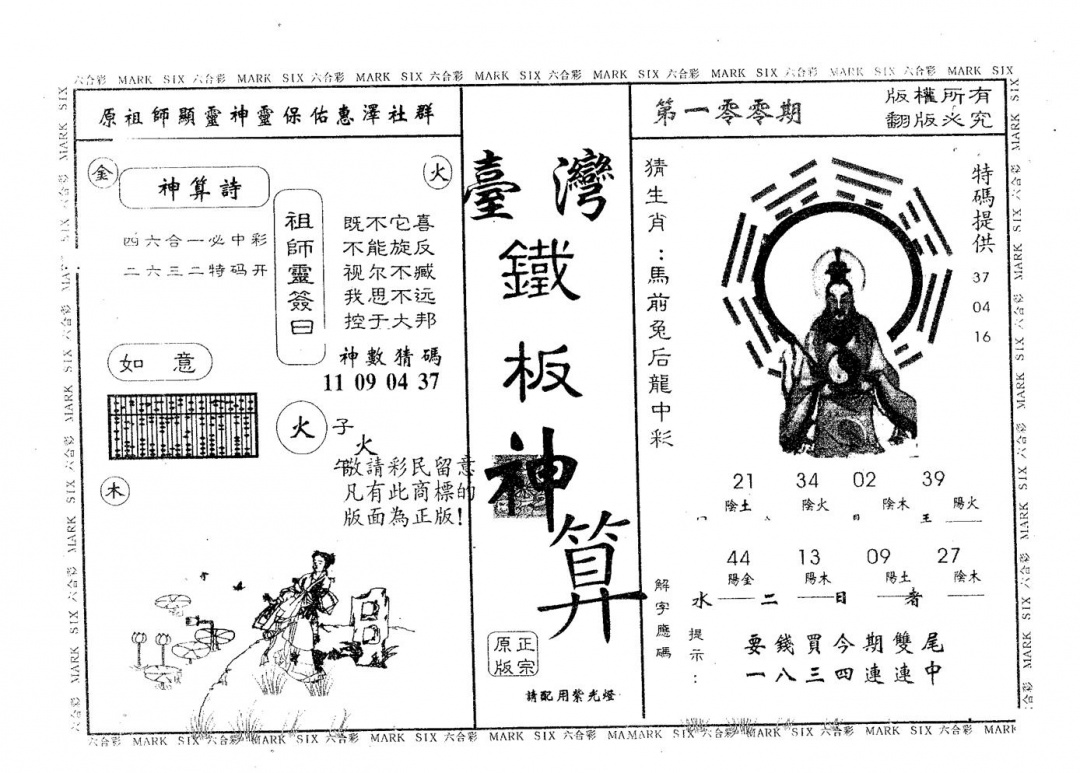 六合彩 MARK SIX 六合彩 MARK SIX 六合彩 MARK SIX 六合彩 MARK SIX 六合彩 MARK SIX 六合彩 MARK SIX 六合彩 MARK SIX 六合彩 MARK SIX
原祖師顯靈神靈保佑惠澤社群
金
火
神算詩
四六合一必中彩
二六三二特码开
祖師靈簽曰
既不它喜
不能旋反
视尔不臧
我思不远
控于大邦
神數猜碼
11 09 04 37
如意
火
子
火
午
敬請彩民留意
凡有此商標的
版面為正版!
木
臺灣
鐵
板
神
算
正宗
原版
請配用紫光燈
第一零零期
版權所有
翻版必究
猜生肖:馬前兔后龍中彩
特碼提供
37
04
16
21 34 02 39
陰土 陰火 陰木 陽火
44 13 09 27
陽金 陽木 陽土 陰木
水 二 日 者
解字應碼
提示:
要錢買今期雙尾
一八三四連連中
六合彩 MARK SIX 六合彩 MARK SIX 六合彩 MARK SIX 六合彩 MARK SIX 六合彩 MAMARK SIX 六合彩 MARK SIX 六合彩 MARK SIX 六合彩 MARK